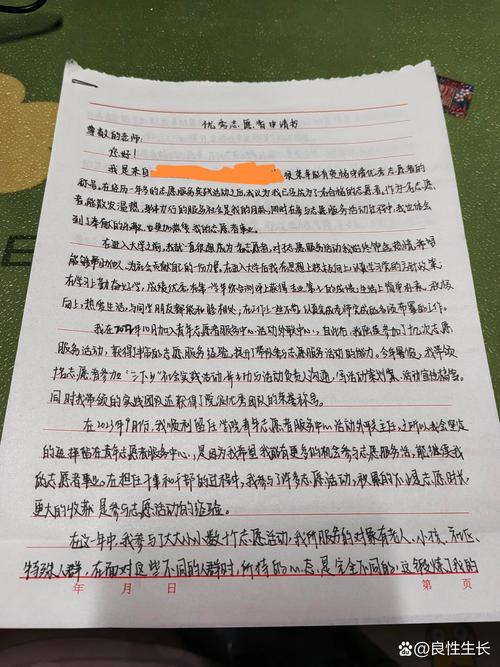 优秀志愿者申请书
尊敬的老师:
您好!
我是来自 很荣幸能有资格申请优秀志愿者的
称号。在经历一年多的志愿服务实践活动之后,我认为我已经成为了合格的志愿者。作为一名志愿
者,能散发温热,身体力行的服务社会是我的目的,同时在参与志愿服务活动过程中,我也体会
到了奉献的乐趣,也更加热爱我的志愿者事业。
在进入大学之前,我就一直很想成为一名志愿者,对于志愿服务活动我始终饱含热情,希望
能够帮助他人,为社会贡献自己的一份力量。在进入大学后我在思想上积极向上,认真学习党的方针政策,
在学习上勤奋好学,成绩优良,在 学年综合测评上获得专业第七的成绩,生活上简单朴素,积极
向上,热爱生活,与同学朋友都能和睦相处,在工作上一丝不苟,认真完成老师交代的各项部署的工作。
我在2022年10月加入青年志愿者服务中心活动外联中心,自此后,我陆续参加了几次志愿
服务活动,获得了丰富的志愿服务经验,提升了带队参与志愿服务活动的能力。今年暑假,我带领
名志愿者参加“三下乡”社会实践活动,并主动与活动负责人沟通,写活动策划案、活动宣传稿等。
同时我带领的实践团队还获得了院级优秀团队的荣誉称号。
在2023年9月份,我顺利留任学院青年志愿者服务中心活动外联主任,之所以我会坚定
的选择留在青年志愿者服务中心,是因为我希望我能有更多的机会参与志愿服务活动,能继续我
的志愿者事业。在担任干事和干部的过程中,我参与了许多志愿活动,积累的不止是志愿时长,
更大的收获是参与志愿活动的经验。
在这一年中,我参与了大大小小数十个志愿活动,我所服务的对象有老人、小孩、社区、
特殊人群,在面对这些不同的人群时,所持的心态是完全不同的,这锻炼了我的
年 月 日 第 页
良性生长